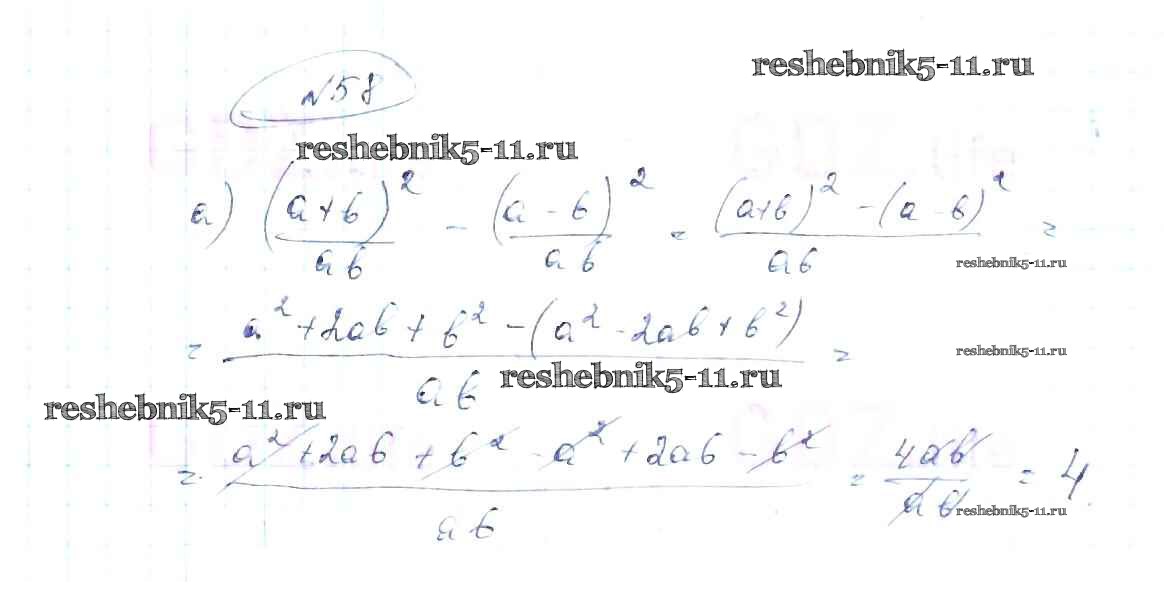 reshebnik5-11.ru
№58
reshebnik5-11.ru
а) (a+b)²/ab - (a-b)²/ab = ((a+b)² - (a-b)²)/ab =
reshebnik5-11.ru
= (a² + 2ab + b² - (a² - 2ab + b²))/ab =
reshebnik5-11.ru
reshebnik5-11.ru
reshebnik5-11.ru
= (a² + 2ab + b² - a² + 2ab - b²)/ab = 4ab/ab = 4.
reshebnik5-11.ru